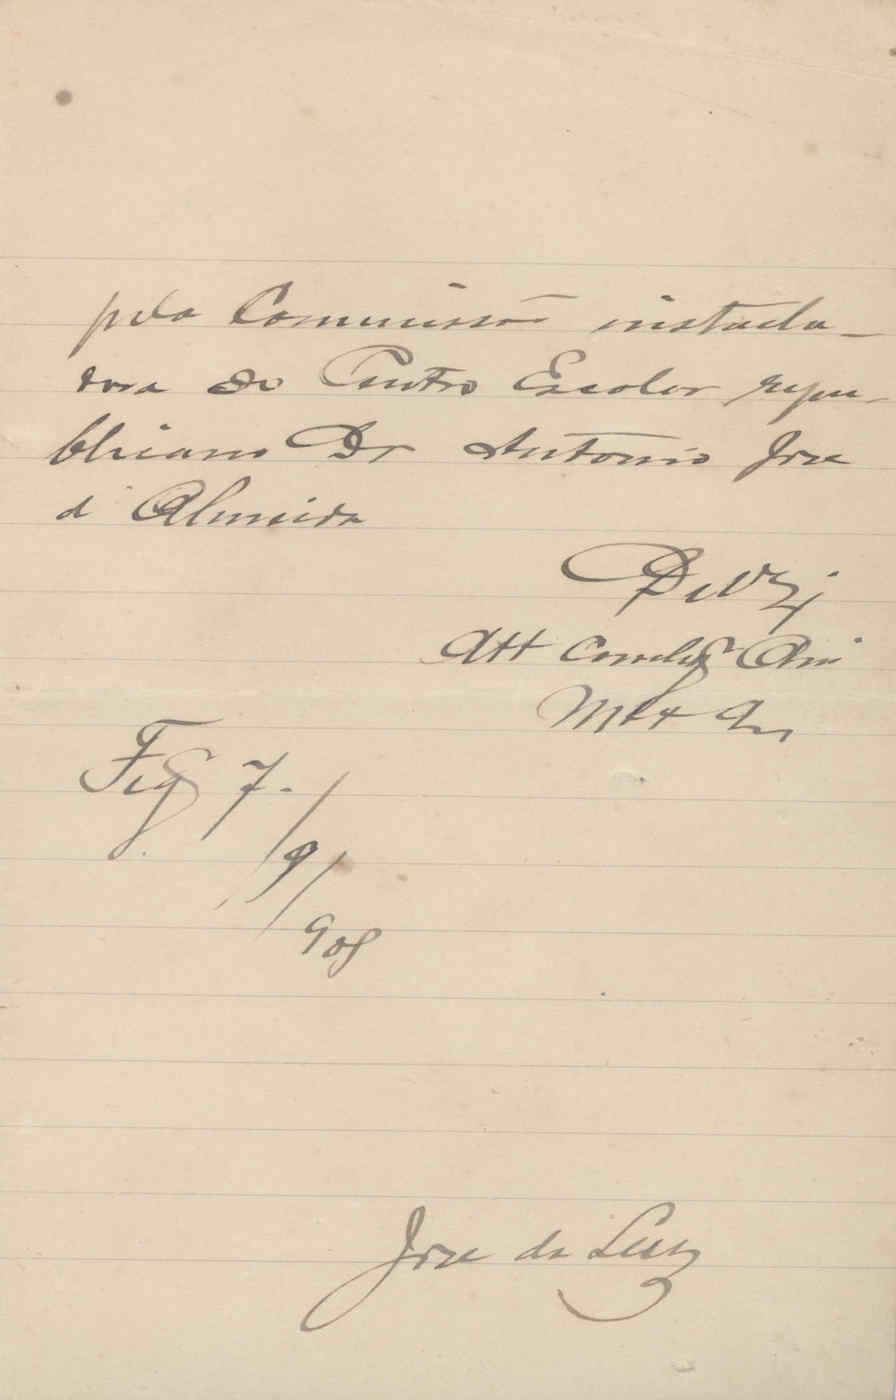 pela Commissão installa-
dora do Centro Escolar repu-
blicano Dr Antonio Jose
d'Almeida
De V.
Att
Mto
Fig 7.
/9/
908
Jose da Luz